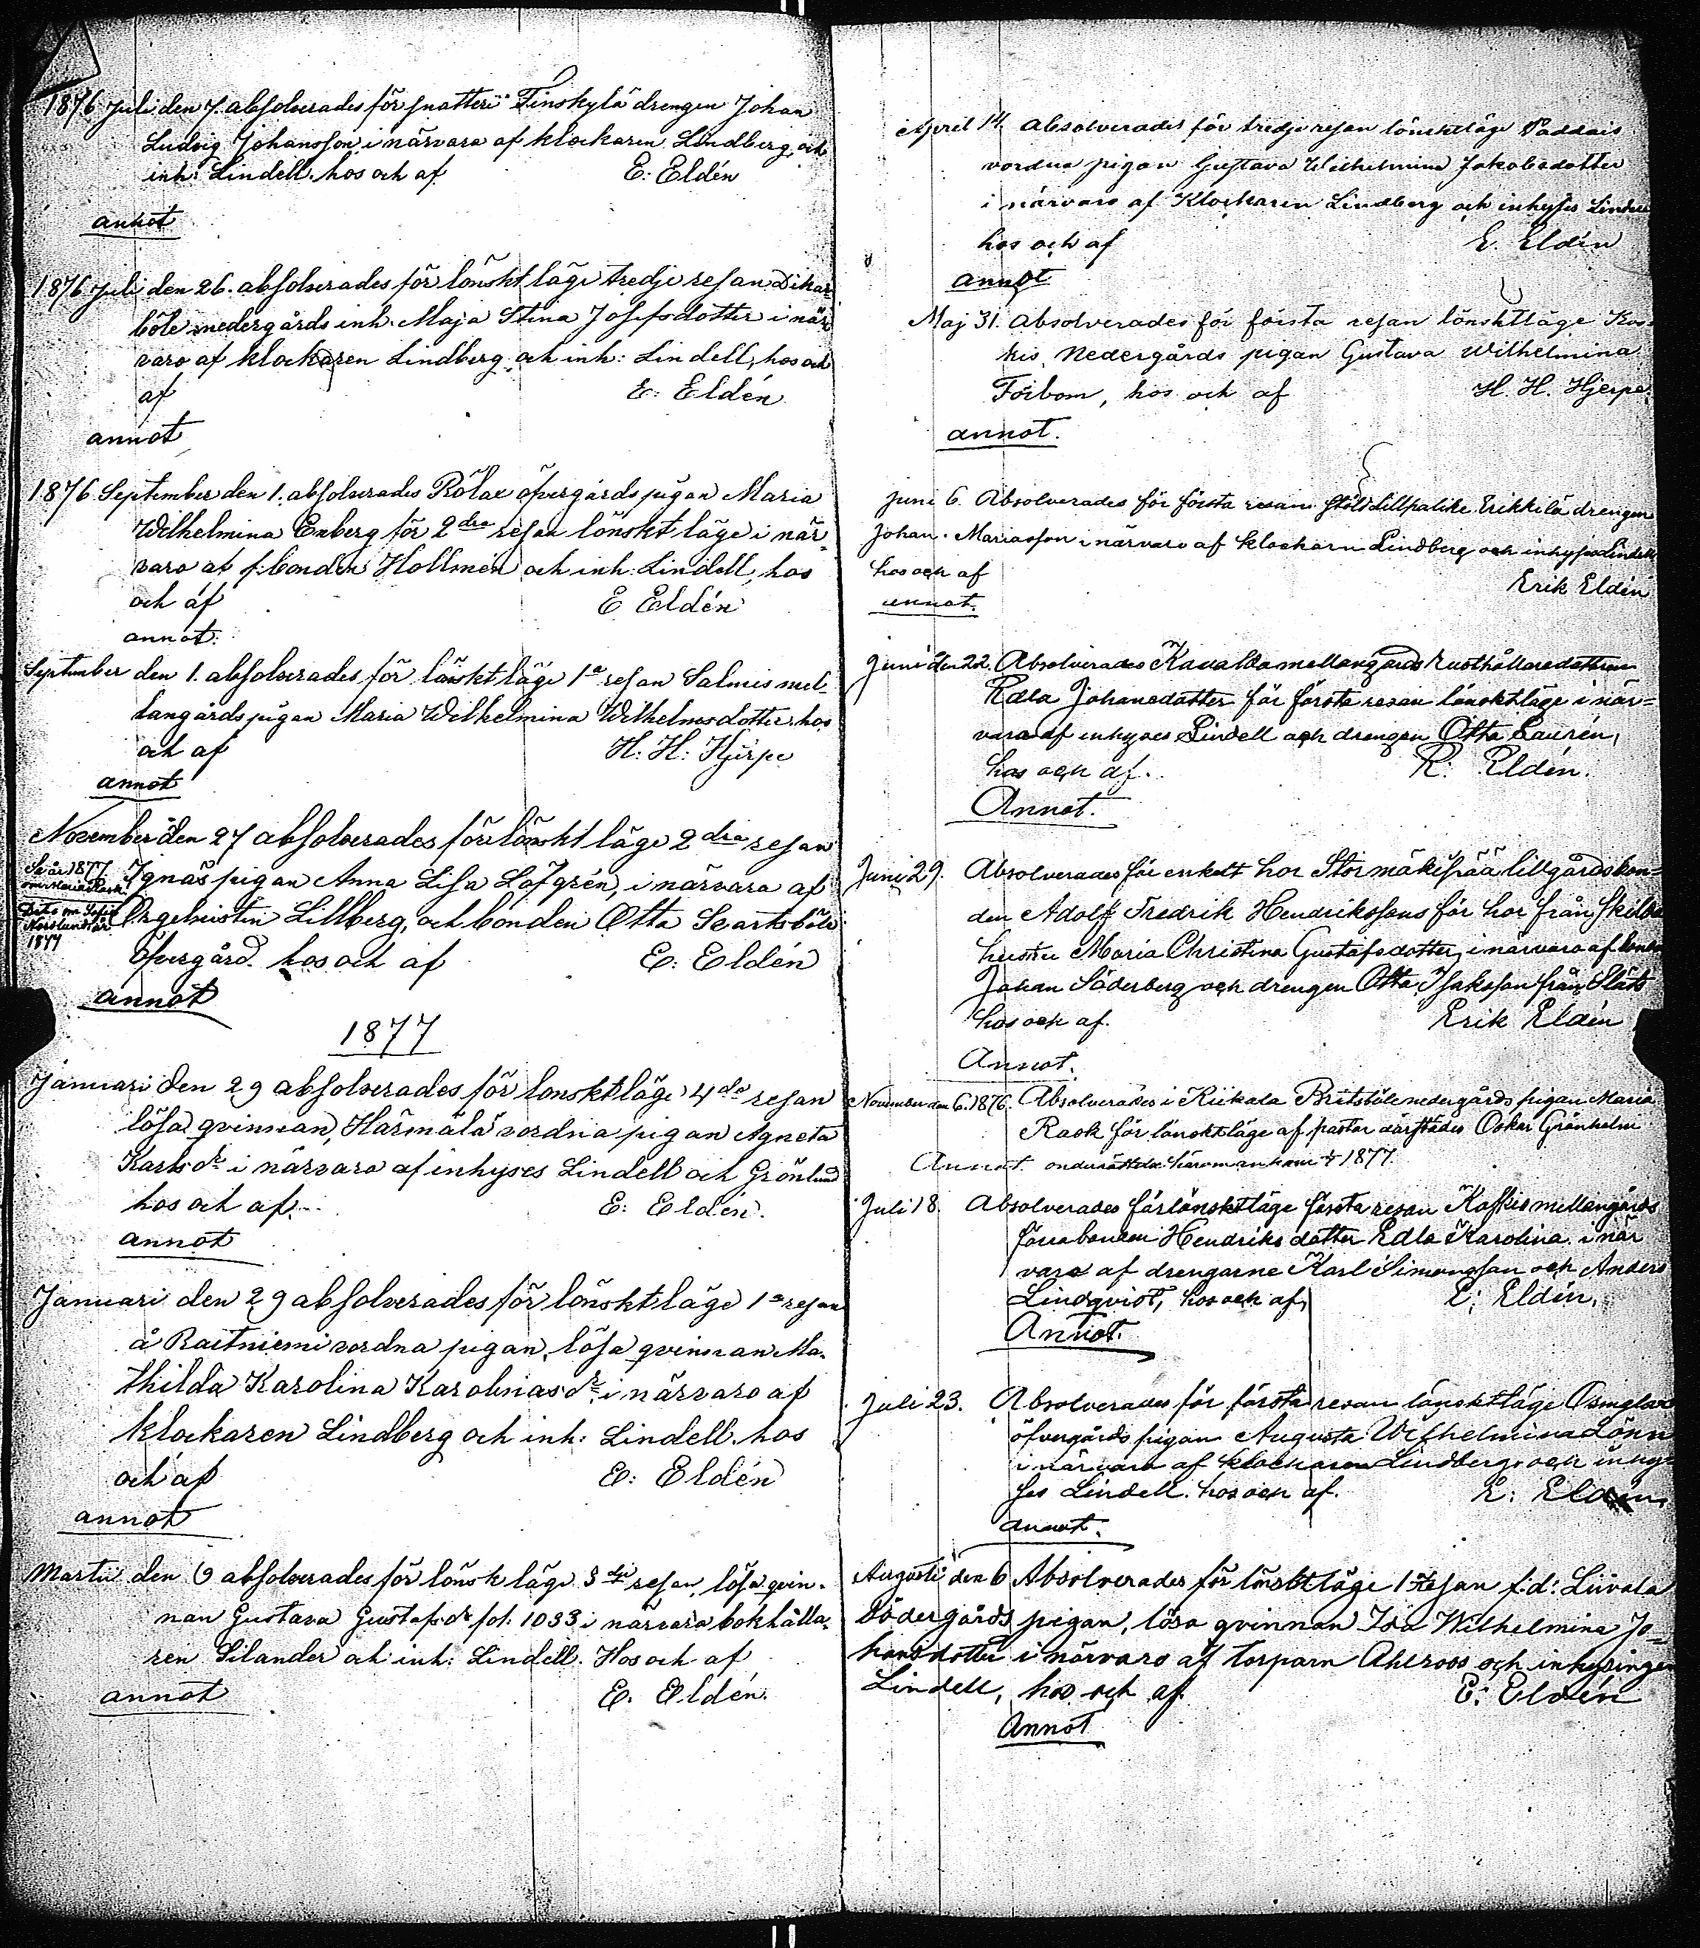 1876 Juli den 7. absolverades för snatteri Finskylä drengen Johan
Ludvig Johansson i närvaro af klockaren Lindberg och
inh: Lindell. hos och af E: Eldén
annot
1876 Juli den 26. absolverades för lönskt läge tredje resan Dikar
böle nedergårds inh. Maja Stina Josefsdotter i när
varo af klockaren Lindberg och inh: Lindell, hos och
af E: Eldén
annot
1876 September den 1. absolverades Rölax öfvergårds pigan Maria
Wilhelmina Enberg för 2dra resan lönskt läge i när
varo af f: bonden Hollmén och inh: Lindell, hos
och af E Eldén
annot.
September den 1. absolverades för lönskt läge 1a resan Salmis mel
langårds pigan Maria Wilhelmina Wilhelmsdotter. hos
och af H: H: Hjerpe
annot
November den 27 absolverades för lönskt läge 2dra resan
Ignäs pigan Anna Lisa Löfgrén, i närvaro af
Orgelnisten Lillberg, och bonden Otto Svartsböle
Öfvergård. hos och af E: Eldén
1877
annot
1877
Januari den 29 absolverades för lönsktläge 4de resan
lösa qvinnan, Härmälä vordna pigan Agneta
Karlsdr i närvaro af inhyses Lindell och Grönlund
hos och af. E: Eldén.
annot
Januari den 29 absolverades för lönsktläge 1a resan
å Raitniemi vordna pigan, lösa qvinnan Ma-
thilda Karolina Karolinasdr i närvaro af
klockaren Lindberg och inh: Lindell. hos
och af E: Eldén
annot
Martii den 9 absolverades för lönsk läge 3dje resan lösa qvin-
nan Gustava Gustafsdr fol. 1033 i närvaro bokhålla-
ren Silander och inh: Lindell. Hos och af
annot E. Eldén.
April 14. Absolverades för tredje resan lönsktläge Paddais
vordna pigan Gustava Wilhelmina Jakobsdotter
i närvaro af Klockaren Lindberg och inhyses Lindell
hos och af E. Eldén
annot
Maj 31. Absolverades för första resan lönsktläge Kos-
kis Nedergårds pigan Gustava Wilhelmina
Forbom, hos och af H. H. Hjerpe.
annot.
Juni 6. Absolverades för första resan stöld Erikkilä drengen
Johan Mariasson i närvaro af klockarn Lindberg och inhyses Lindell
hos och af Erik Eldén
annot.
Juni den 22. Absolverades Kavalda mellangårds rusthållaredottren
Edla Johansdotter för första resan lönsktläge i när-
varo af inhyses Lindell och drengen Otto Laurén,
hos och af. E: Eldén.
Annot.
Juni 29. Absolverades för enkelt hor Stormäkispää lillgårds bon-
den Adolf Fredrik Hendrikssons för hor från skilda
hustru Maria Christina Gustafsdotter, i närvaro af bonden
Johan Söderberg och drengen Otto Isaksson från Släts
hos och af. Erik Eldén
Annot.
November den 6. 1876. Absolverades i Kiikala Britsböle nedergårds pigan Maria
Rask för lönsktläge af pastor därstädes Oskar Grönholm
Annot. 1877.
Juli 18. Absolverades för lönsktläge första resan Koskis mellangårds
förra bonden Hendriks dotter Edla Karolina i när
varo af drengarne Karl Simonsson och Anders
Lindqvist, hos och af, E: Eldén.
Annot.
Juli 23. Absolverades för första resan lönsktläge Osmglax
öfvergårds pigan Augusta Wilhelmina Lönn
i närvaro af klockaren Lindberg och inhy-
ses Lindell. hos och af. E: Eldén.
annot.
Augusti den 6 Absolverades för lönsktläge 1sta resan f: d: Liivala
Södergårds pigan, lösa qvinnan Ida Wilhelmina Jo-
hansdotter i närvaro af torparn Ahlroos och inhysingen
Lindell, hos och af. E: Eldén
Annot